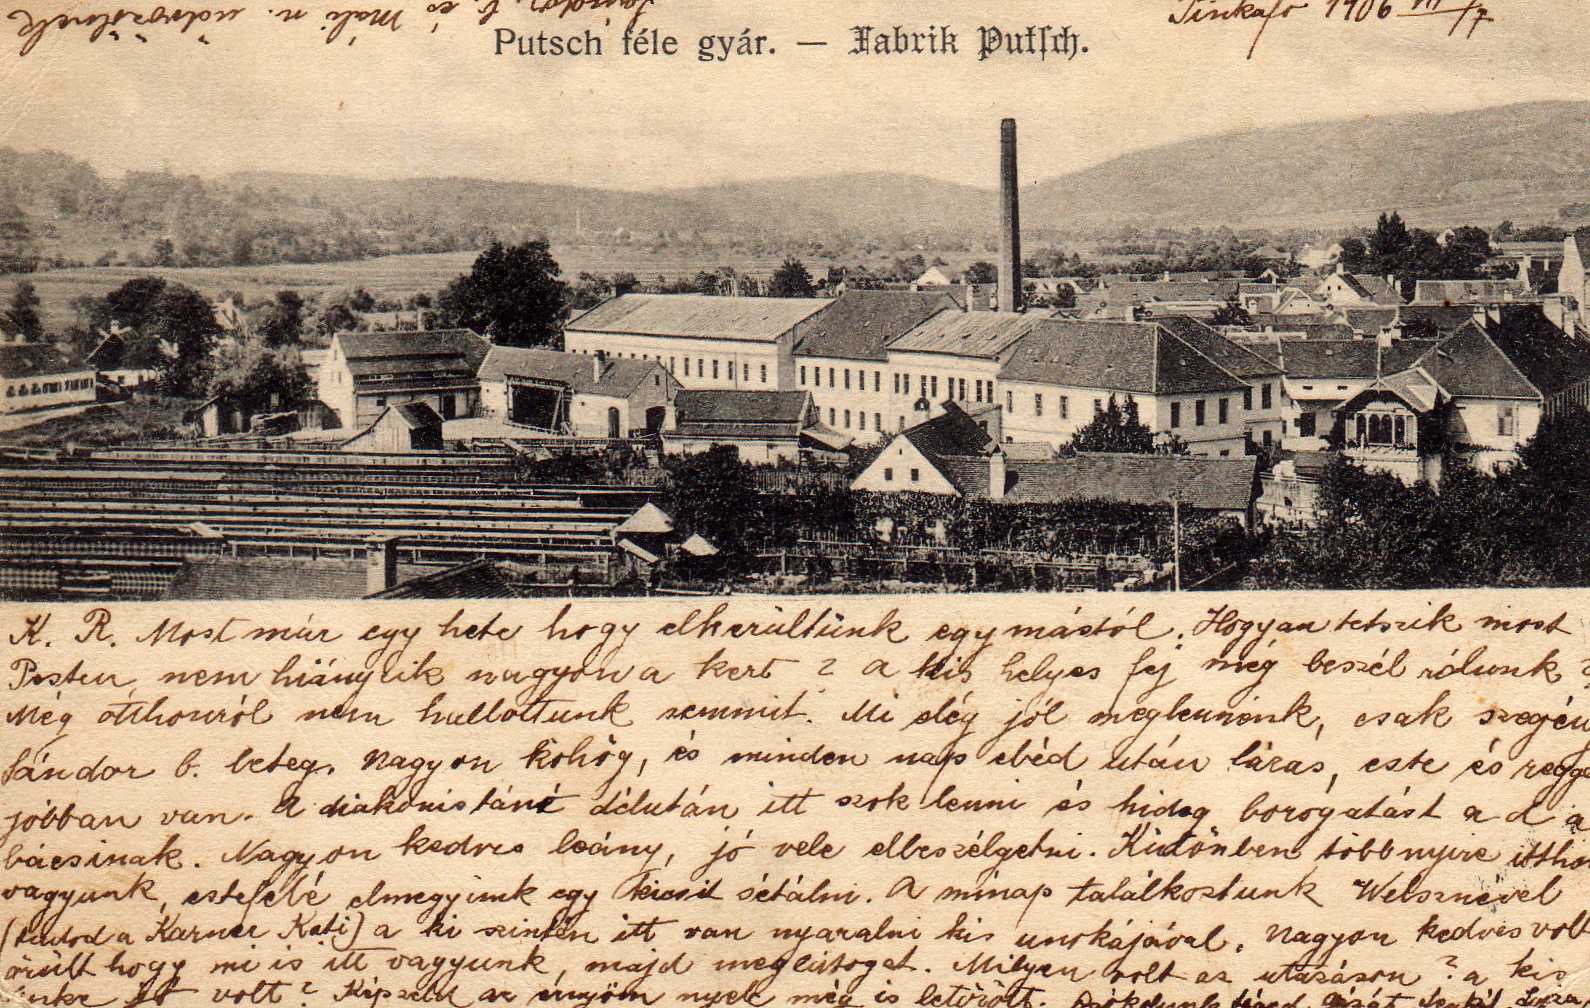 Pinkafő 1906 VII/7
Putsch féle gyár. — Fabrik Putsch.
K. R. Most már egy hete hogy elkerültünk egymástól. Hogyan tetszik most
Pesten, nem hiányzik nagyon a kert? a kis helyes fej még beszél rólunk?
Még otthonról nem hallottunk semmit. Mi elég jól meglennénk, csak szegén
Sándor b. beteg. Nagyon köhög, és minden nap ebéd után lázas, este és regg
jobban van. A diakonistáné délután itt szok lenni és hideg borogatást ad a
bácsinak. Nagyon kedves leány, jó vele elbeszélgetni. Különben többnyire ittho
vagyunk, estefelé elmegyünk egy kicsit sétálni. A minap találkoztunk Welsznével
(tudod a Karner Kati) a ki szintén itt van nyaralni kis unokájával. Nagyon kedves volt
örült hogy mi is itt vagyunk, majd meglátogat. Milyen volt az utazáson? a kis
volt? Képzeld az ernyőm nyele még is letörött.